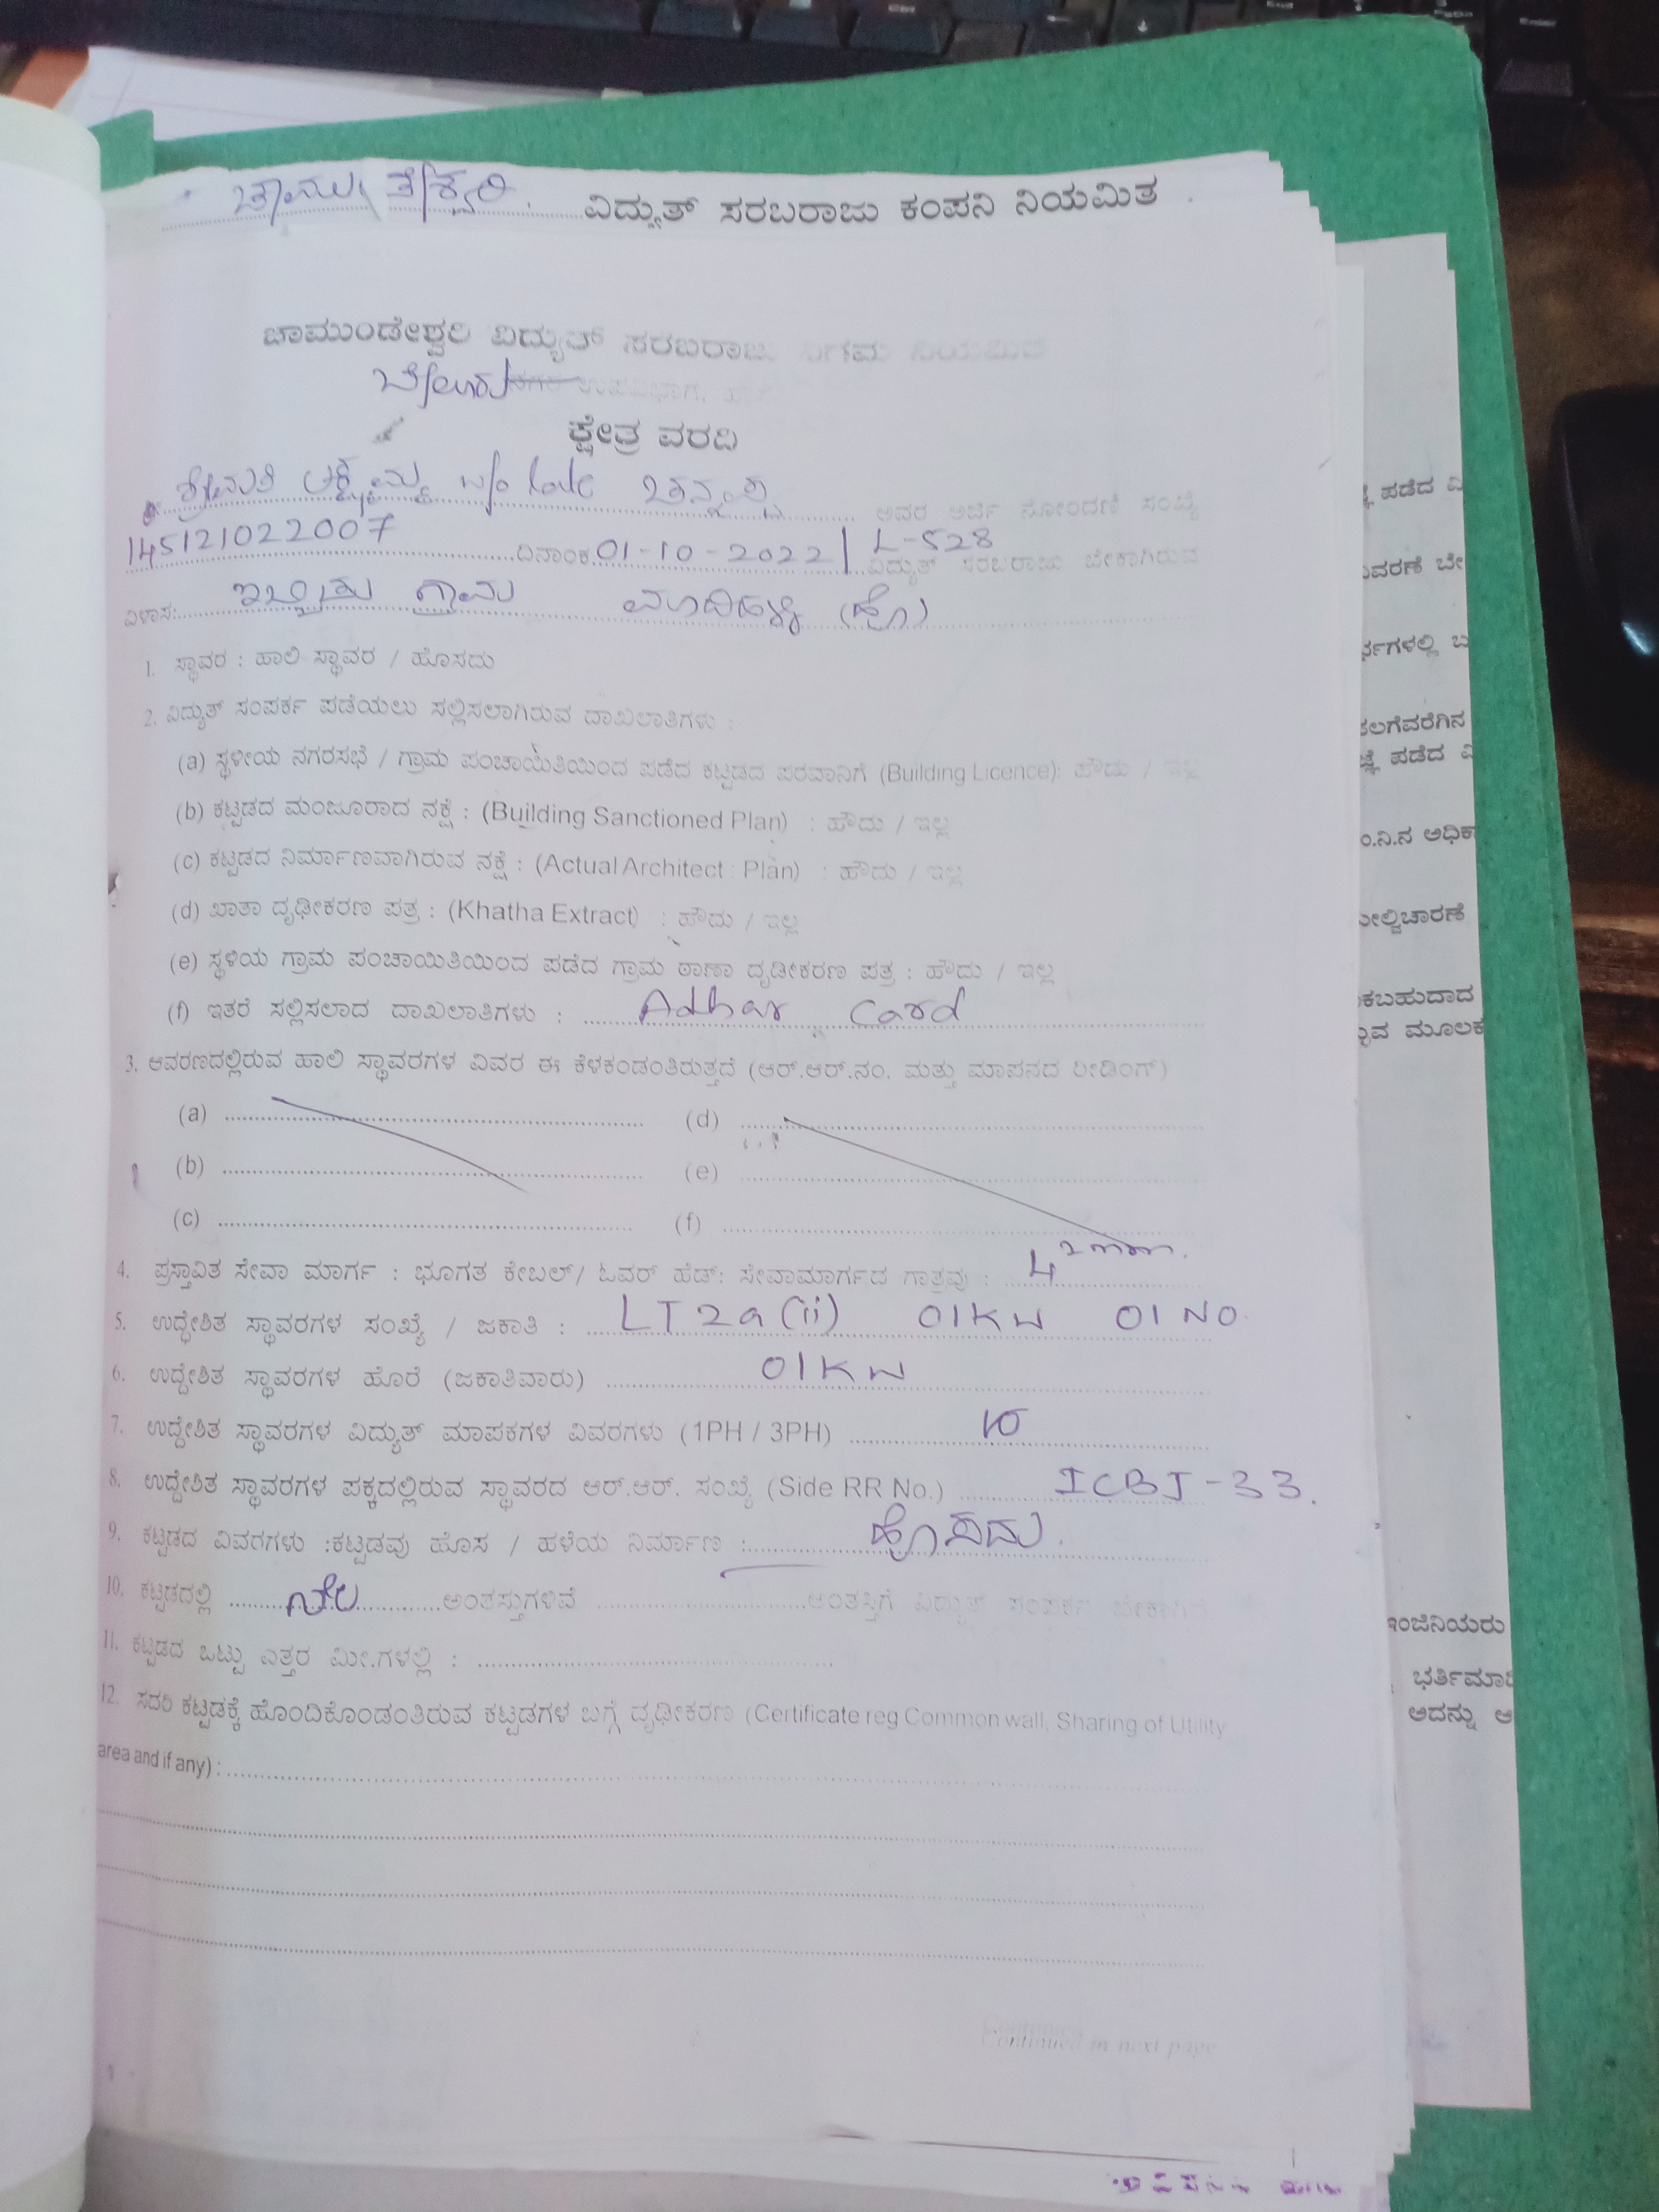 ವಿದ್ಯುತ್ ಸರಬರಾಜು ಕಂಪನಿ ನಿಯಮಿತ
ಚಾಮುಂಡೇಶ್ವರಿ ವಿದ್ಯುತ್ ಸರಬರಾಜು ನಿಗಮ ನಿಯಮಿತ
ಬೇಲೂರು ಉಪವಿಭಾಗ,
ಕ್ಷೇತ್ರ ವರದಿ
ಶ್ರೀಮತಿ ಲಕ್ಷ್ಮಮ್ಮ w/o late ಚನ್ನಪ್ಪ ಅವರ ಅರ್ಜಿ ನೋಂದಣಿ ಸಂಖ್ಯೆ
145121022007 ದಿನಾಂಕ 01-10-2022 | L-528 ವಿದ್ಯುತ್ ಸರಬರಾಜು ಬೇಕಾಗಿರುವ
ವಿಳಾಸ: ಗ್ರಾಮ ಮಾದಿಹಳ್ಳಿ (ಹೋ)
1. ಸ್ಥಾವರ : ಹಾಲಿ ಸ್ಥಾವರ / ಹೊಸದು
2. ವಿದ್ಯುತ್ ಸಂಪರ್ಕ ಪಡೆಯಲು ಸಲ್ಲಿಸಲಾಗಿರುವ ದಾಖಲಾತಿಗಳು :
(a) ಸ್ಥಳೀಯ ನಗರಸಭೆ / ಗ್ರಾಮ ಪಂಚಾಯಿತಿಯಿಂದ ಪಡೆದ ಕಟ್ಟಡದ ಪರವಾನಿಗೆ (Building Licence): ಹೌದು / ಇಲ್ಲ
(b) ಕಟ್ಟಡದ ಮಂಜೂರಾದ ನಕ್ಷೆ : (Building Sanctioned Plan) : ಹೌದು / ಇಲ್ಲ
(c) ಕಟ್ಟಡದ ನಿರ್ಮಾಣವಾಗಿರುವ ನಕ್ಷೆ : (Actual Architect : Plan) : ಹೌದು / ಇಲ್ಲ
(d) ಖಾತಾ ದೃಢೀಕರಣ ಪತ್ರ : (Khatha Extract) : ಹೌದು / ಇಲ್ಲ
(e) ಸ್ಥಳಿಯ ಗ್ರಾಮ ಪಂಚಾಯಿತಿಯಿಂದ ಪಡೆದ ಗ್ರಾಮ ಠಾಣಾ ದೃಡೀಕರಣ ಪತ್ರ : ಹೌದು / ಇಲ್ಲ
(f) ಇತರೆ ಸಲ್ಲಿಸಲಾದ ದಾಖಲಾತಿಗಳು : Adhar Card
3. ಆವರಣದಲ್ಲಿರುವ ಹಾಲಿ ಸ್ಥಾವರಗಳ ವಿವರ ಈ ಕೆಳಕಂಡಂತಿರುತ್ತದೆ (ಆರ್.ಆರ್.ನಂ. ಮತ್ತು ಮಾಪನದ ರೀಡಿಂಗ್)
(a) (d)
(b) (e)
(c) (f)
4. ಪ್ರಸ್ತಾವಿತ ಸೇವಾ ಮಾರ್ಗ : ಭೂಗತ ಕೇಬಲ್/ ಓವರ್ ಹೆಡ್: ಸೇವಾಮಾರ್ಗದ ಗಾತ್ರವು : 4 2mm.
5. ಉದ್ಧೇಶಿತ ಸ್ಥಾವರಗಳ ಸಂಖ್ಯೆ / ಜಕಾತಿ : LT 2a (ii) 01KW 01 NO.
6. ಉದ್ದೇಶಿತ ಸ್ಥಾವರಗಳ ಹೊರೆ (ಜಕಾತಿವಾರು) 01KW
7. ಉದ್ದೇಶಿತ ಸ್ಥಾವರಗಳ ವಿದ್ಯುತ್ ಮಾಪಕಗಳ ವಿವರಗಳು (1PH / 3PH)
8. ಉದ್ದೇಶಿತ ಸ್ಥಾವರಗಳ ಪಕ್ಕದಲ್ಲಿರುವ ಸ್ಥಾವರದ ಆರ್.ಆರ್. ಸಂಖ್ಯೆ (Side RR No.) ICBJ-33.
9. ಕಟ್ಟಡದ ವಿವರಗಳು :ಕಟ್ಟಡವು ಹೊಸ / ಹಳೆಯ ನಿರ್ಮಾಣ : ಹೊಸದು.
10. ಕಟ್ಟಡದಲ್ಲಿ ನೆಲ ಅಂತಸ್ತುಗಳಿವೆ ಅಂತಸ್ತಿಗೆ ವಿದ್ಯುತ್ ಸಂಪರ್ಕ ಬೇಕಾಗಿದೆ
11. ಕಟ್ಟಡದ ಒಟ್ಟು ಎತ್ತರ ಮೀ.ಗಳಲ್ಲಿ :
12. ಸದರಿ ಕಟ್ಟಡಕ್ಕೆ ಹೊಂದಿಕೊಂಡಂತಿರುವ ಕಟ್ಟಡಗಳ ಬಗ್ಗೆ ದೃಢೀಕರಣ (Certificate reg Common wall, Sharing of Utility
area and if any) :
Continued in next page
ಪಡೆದ
ತಲಗೆವರೆಗಿನ
ಪಡೆದ
ಕಬಹುದಾದ
ಮೂಲಕ
ಇಂಜಿನಿಯರು
ಅದನ್ನು